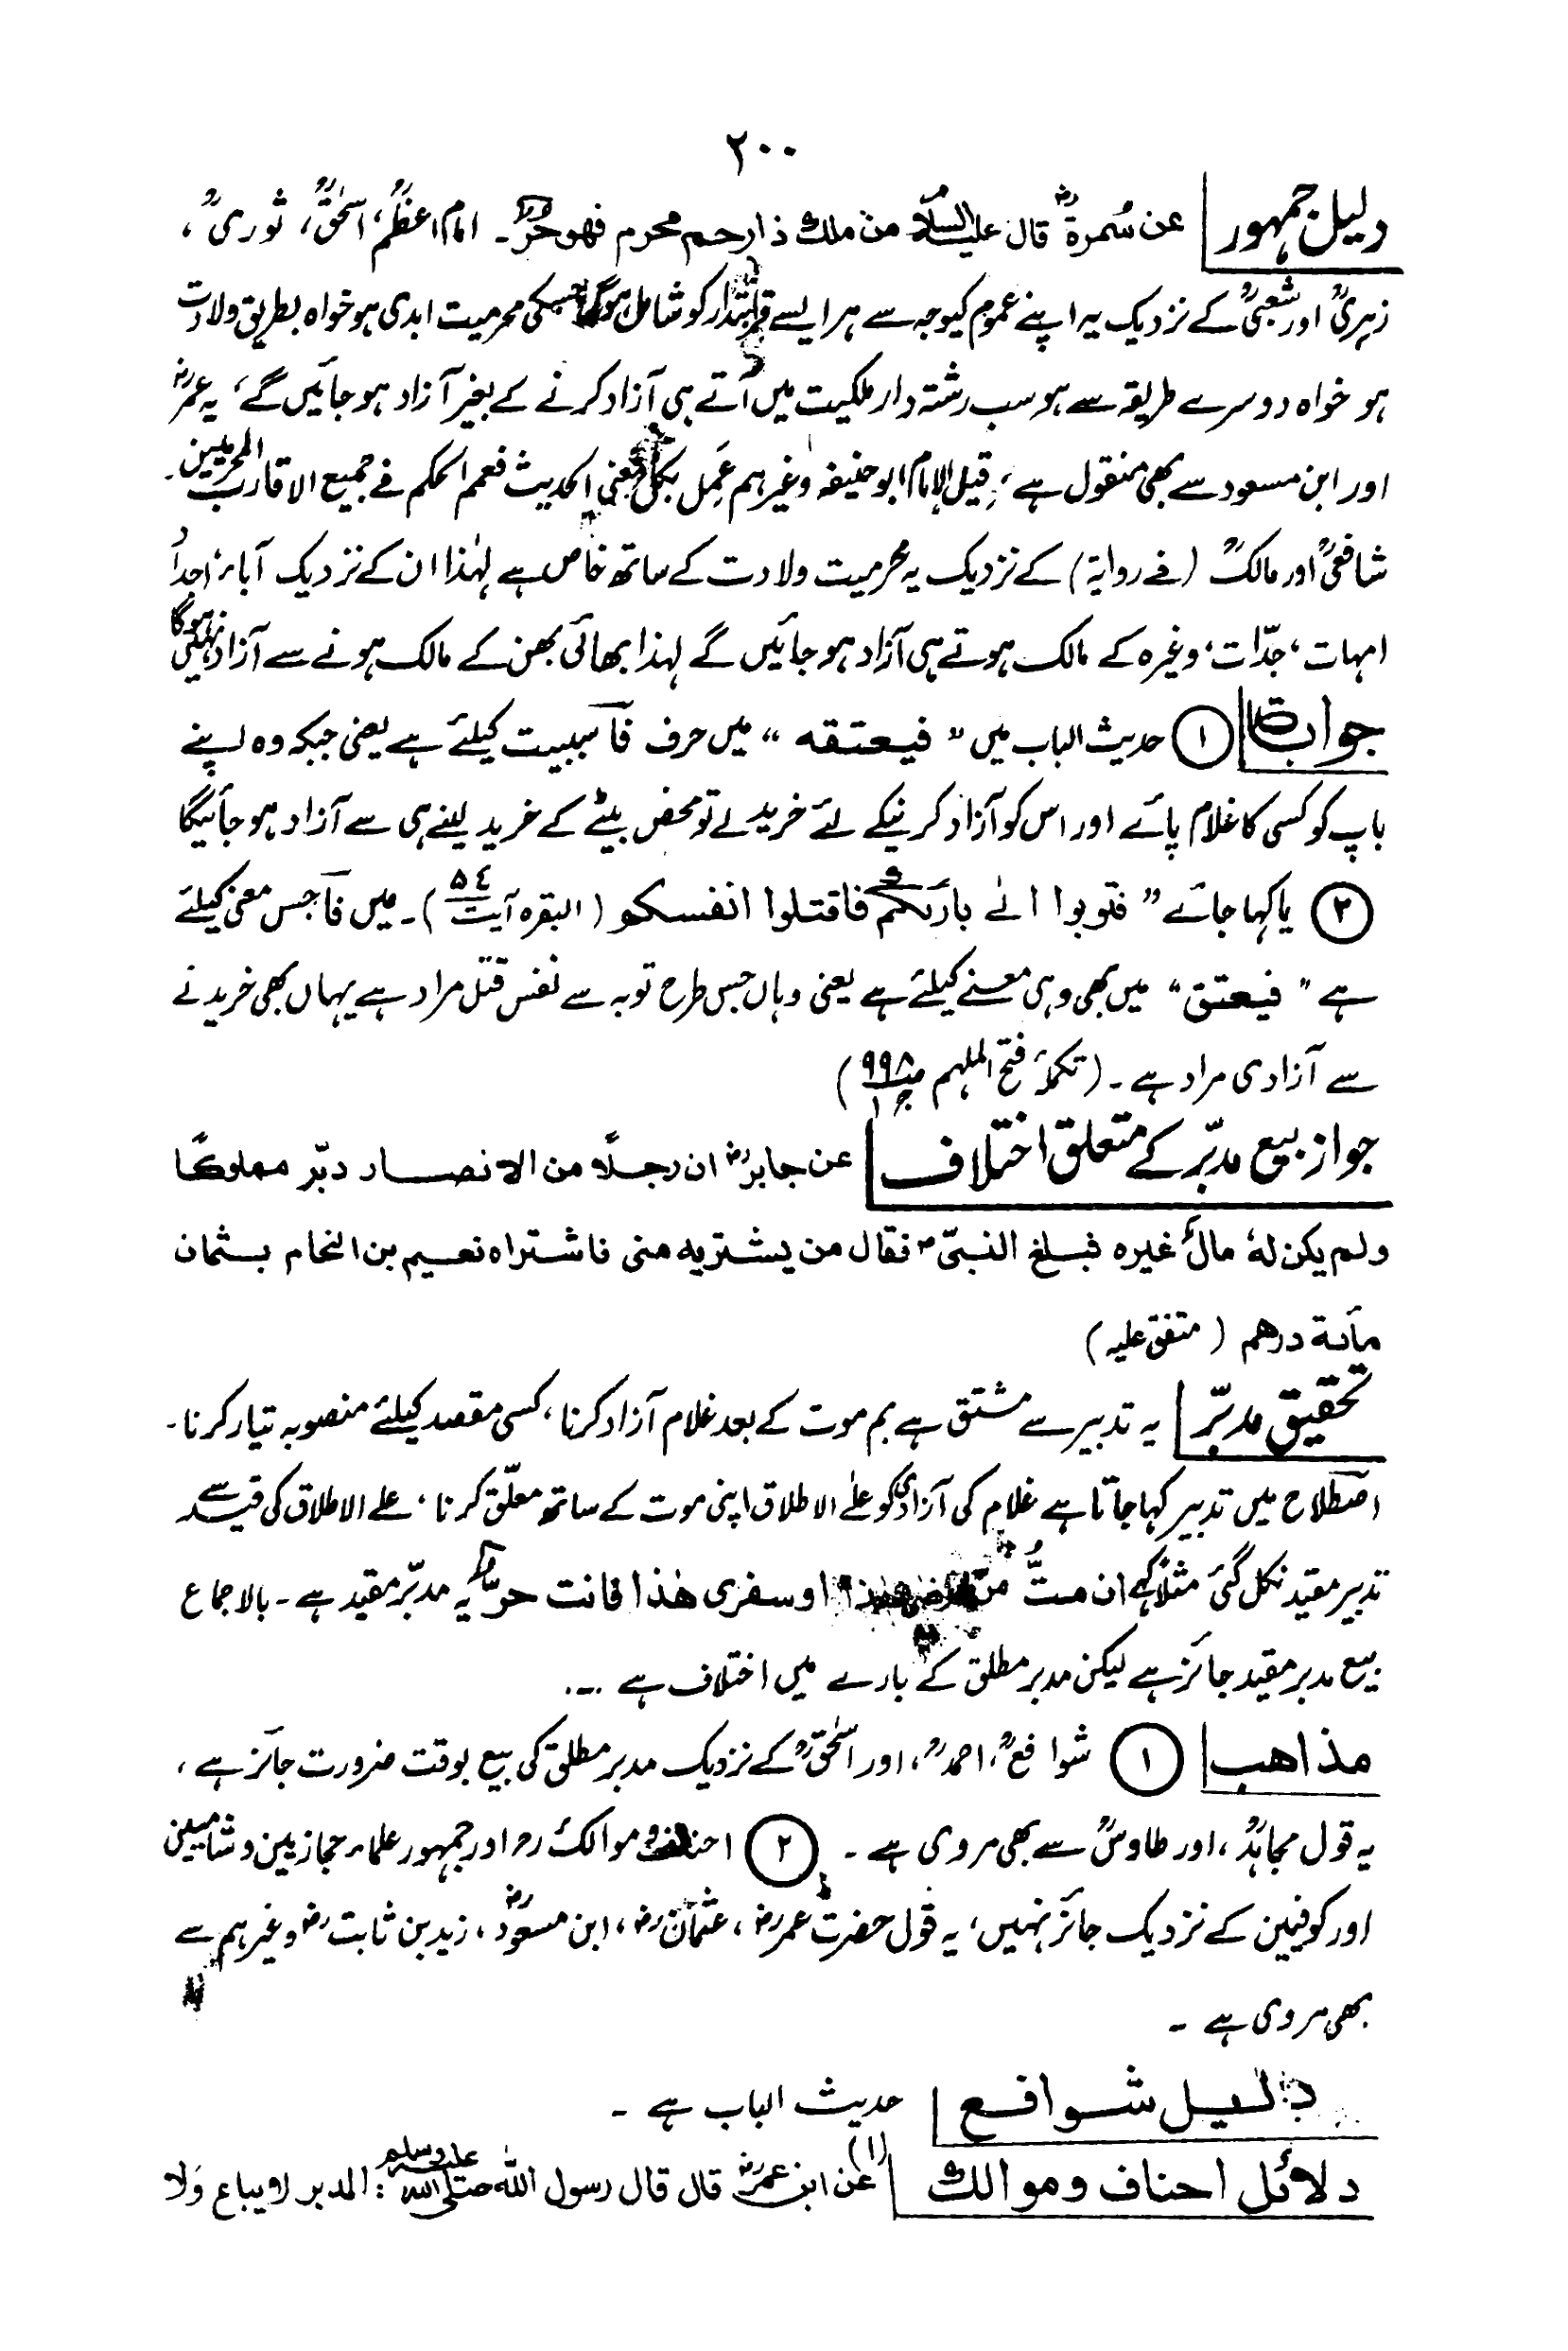 ۲۰۰
دلیل جمہور عن سُمرۃؓ قال علیہ السلام من ملك ذا رحم محرم فهو حرّ۔ امام اعظمؒ، اسحٰقؒ، ثوریؒ،
زہریؒ اور شعبیؒ کے نزدیک یہ اپنے عموم کیوجہ سے ہر ایسے قرابتدار کو شامل ہوگا جسکی محرمیت ابدی ہو خواہ بطریق ولادت
ہو خواہ دوسرے طریقہ سے ہو سب رشتہ دار ملکیت میں آتے ہی آزاد کرنے کے بغیر آزاد ہو جائیں گے، یہ عمرؓ
اور ابن مسعود سے بھی منقول ہے، قیل الإمام ابو حنیفہ وغیرہم عَمِل بکل معنی الحدیث فعمم الحکم فے جمیع الاقارب المحرمیین۔
شافعیؒ اور مالکؒ (فے روایۃ) کے نزدیک یہ محرمیت ولادت کے ساتھ خاص ہے لہٰذا ان کے نزدیک آباء، اجداد
امہات، جدّات، وغیرہ کے مالک ہوتے ہی آزاد ہو جائیں گے لہذا بھائی بھن کے مالک ہونے سے آزاد نہیں ہوگا
جوابات ① حدیث الباب میں " فیعتقه " میں حرف فآ سببیت کیلئے ہے یعنی جبکہ وہ اپنے
باپ کو کسی کا غلام پائے اور اس کو آزاد کرنیکے لئے خریدلے تو محض بیٹے کے خرید لینے ہی سے آزاد ہو جائیگا
② یا کہا جائے " فتوبوا الیٰ بارئکم فاقتلوا انفسکو (البقرہ آیت ۵٤)۔ میں فآ جس معنی کیلئے
ہے " فیعتق " میں بھی وہی معنے کیلئے ہے یعنی وہاں جس طرح توبہ سے نفس قتل مراد ہے یہاں بھی خریدنے
سے آزادی مراد ہے۔ (تکملۂ فتح الملہم ص۹۹۸ ج۱)
جواز بیع مدبّر کے متعلق اختلاف عن جابرؓ ان رجلًا من الانصار دبّر مملوكًا
ولم يكن لهٗ مالٌ غيره فبلغ النبیّ ؐ فقال من يشتريه منی فاشتراه نعيم بن النحام بثمان
مأىة درهم (متفق علیہ)
تحقیق مدبّر یہ تدبیر سے مشتق ہے بم موت کے بعد غلام آزاد کرنا، کسی مقصد کیلئے منصوبہ تیار کرنا۔
اصطلاح میں تدبیر کہا جاتا ہے غلام کی آزادی کو علےٰ الاطلاق اپنی موت کے ساتھ معلّق کرنا، علے الاطلاق کی قید سے
تدبیر مقید نکل گئی مثلاً کہے ان متُّ من مرضی هٰذا او سفری هٰذا فانت حرٌّ یہ مدبّر مقید ہے۔ بالاجماع
بیع مدبر مقید جائز ہے لیکن مدبر مطلق کے بارے میں اختلاف ہے ۔۔
مذاهب ① شوافعؒ، احمدؒ، اور اسحٰقؒ کے نزدیک مدبر مطلق کی بیع بوقت ضرورت جائز ہے،
یہ قول مجاہدؒ، اور طاوسؒ سے بھی مروی ہے۔ ② احناف و موالکؒ رح اور جمہور علماء حجازیین و شامیین
اور کوفیین کے نزدیک جائز نہیں، یہ قول حضرت عمرؓ، عثمانؓ، ابن مسعودؓ، زید بن ثابتؓ وغیرہم سے
بھی مروی ہے ۔
دلیل شوافع حدیث الباب ہے ۔
دلائل احناف و موالك (۱) عن ابن عمرؓ قال قال رسول اللّٰہ صلی اللہ علیہ وسلم: المدبر لا یباع وَلا